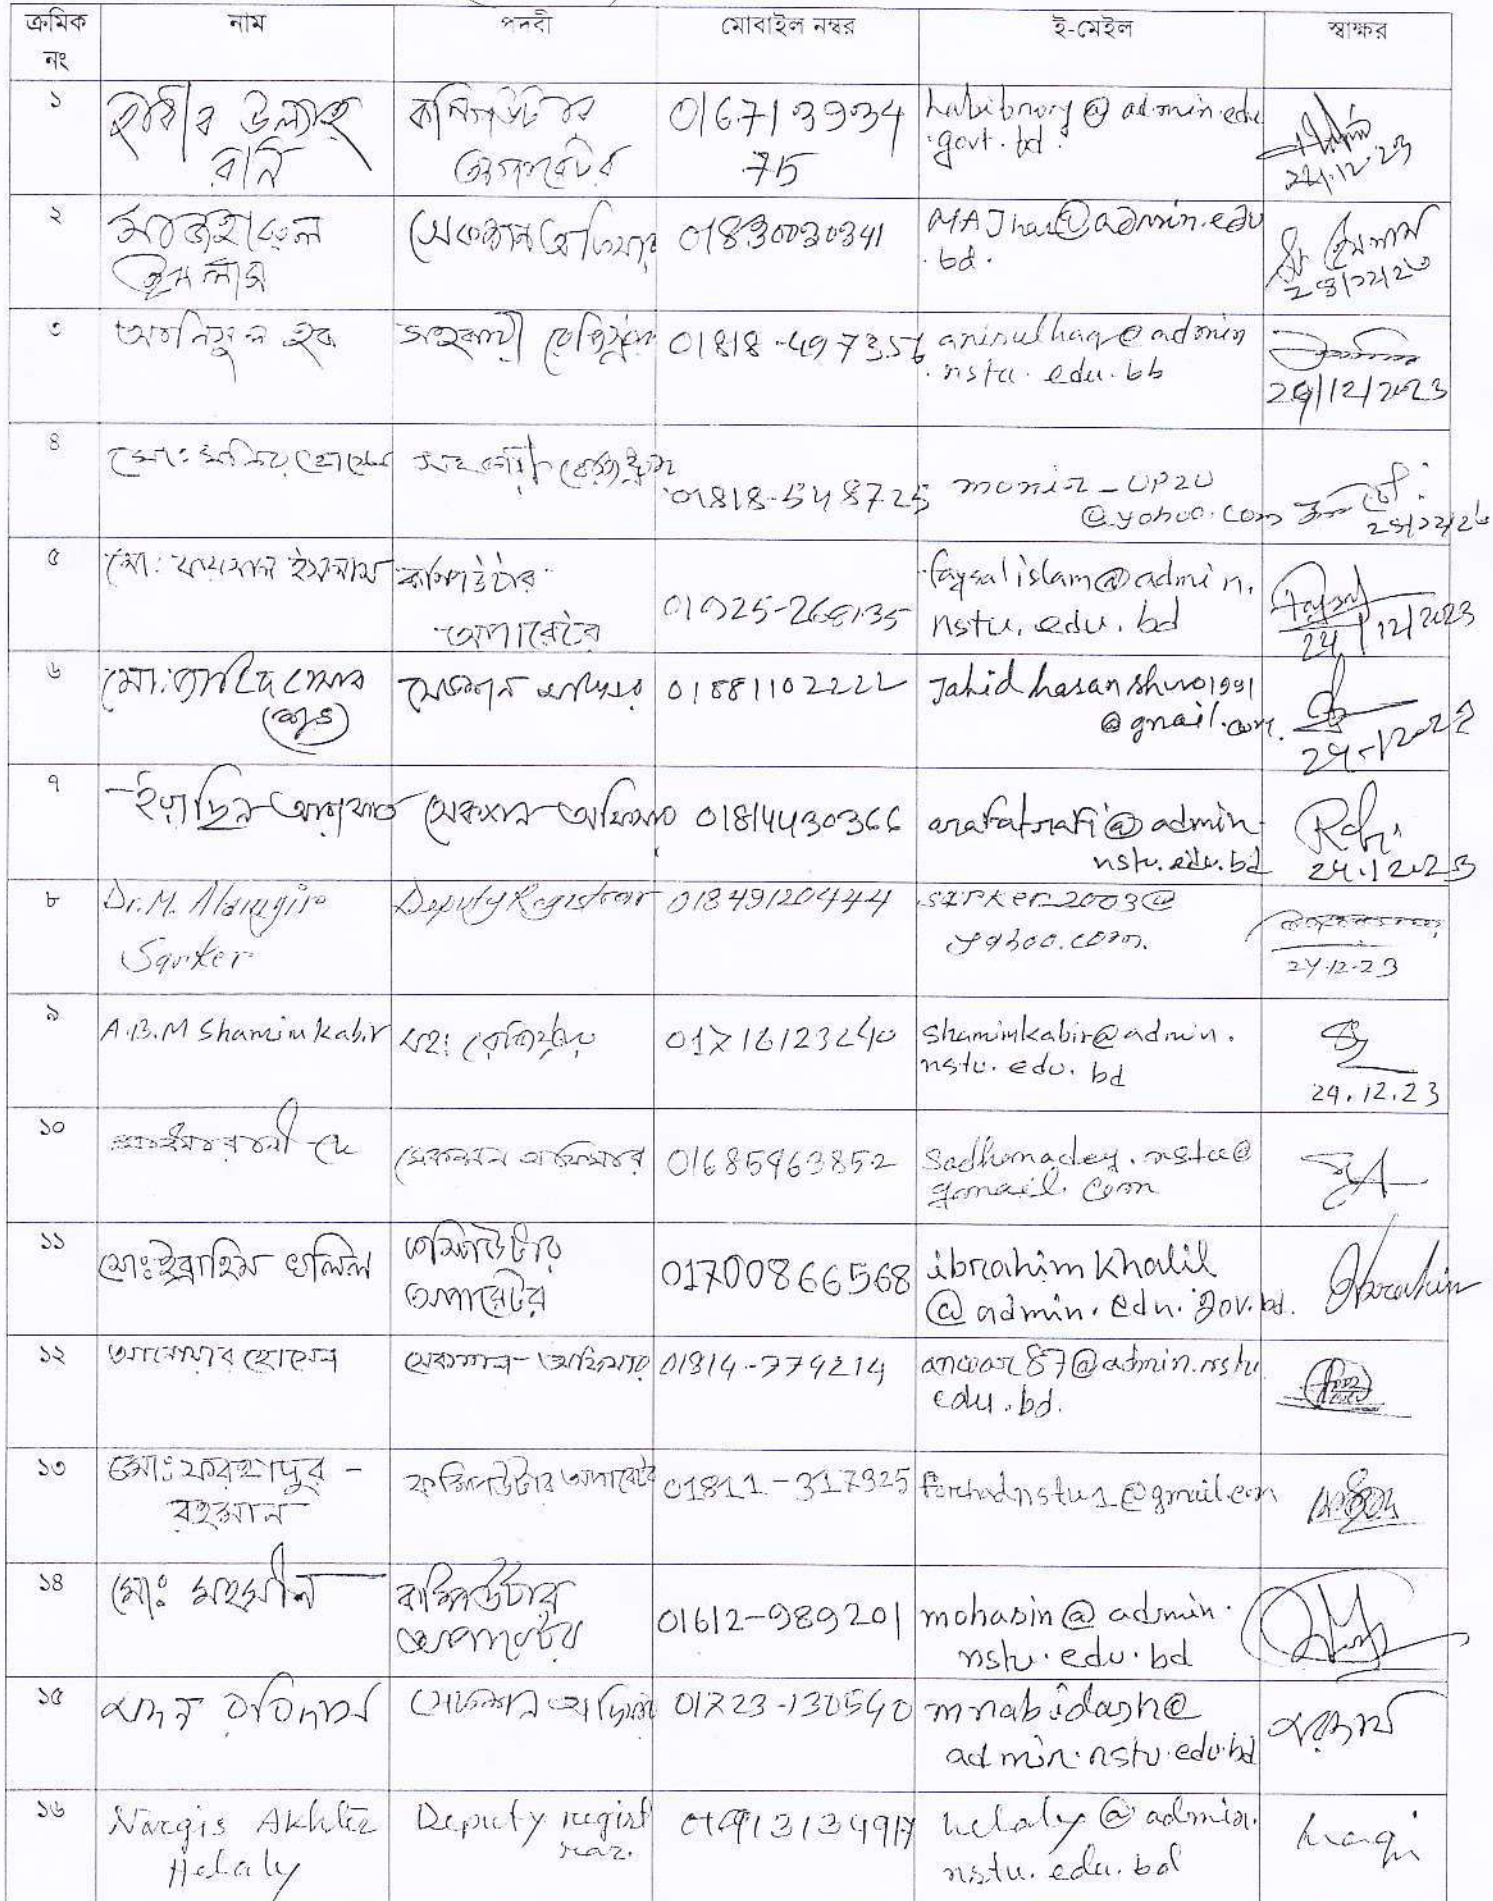 ক্রমিক নং নাম পদবী মোবাইল নম্বর ই-মেইল স্বাক্ষর
১ হাবীব উল্যাহ কম্পিউটার 016713934 @admin.edu
রনি অপারেটর 75 .govt.bd
24.12.23
২ মাজহারুল সেকশন অফিসার 01830030341 MAJhar@admin.edu
ইসলাম .bd.
৩ আনিসুল হক সহকারী রেজিস্ট্রার 01818-497356 anisulhaq@admin
.nstu.edu.bb
24/12/2023
৪ মো: মনির হোসেন সহকারী রেজিস্ট্রার 01818-548725 monir_UP2U
@yahoo.com
৫ মো: ফয়সাল ইসলাম কম্পিউটার faysalislam@admin.
অপারেটর nstu.edu.bd
24/12/2023
৬ সেকশন অফিসার 01881102222
@gmail.com
৭ ইয়াছিন আরাফাত সেকশন অফিসার 01814430366 arafatrafi@admin
nstu.edu.bd Rafi
24.12.23
৮ Dr.M. Alamgir Deputy Registrar 01849120444 sarker_2003@
Sarker yahoo.com.
24.12.23
৯ A.B.M Shamim Kabir সহ: রেজিস্ট্রার 01716123240 shamimkabir@admin.
nstu.edu.bd
24.12.23
১০ সেকশন অফিসার 01685963852 Sadhonadey.nstu@
gmail.com
১১ মোঃ ইব্রাহিম খলিল কম্পিউটার 01700866568 ibrahimkhalil
অপারেটর @admin.edu.gov.bd. Ibrahim
১২ আনোয়ার হোসেন সেকশন অফিসার 01814-774214 anwar87@admin.nstu
edu.bd.
১৩ মোঃ ফরহাদুর - কম্পিউটার অপারেটর 01811-317325 farhadnstu1@gmail.com
রহমান
১৪ মোঃ মহসীন কম্পিউটার 01612-989201 mohasin@admin.
অপারেটর nstu.edu.bd
১৫ সেকশন অফিসার 01723-130540
admin.nstu.edu.bd
১৬ Nargis Akhter Deputy regist helaly@admin.
Helaly rar. nstu.edu.bd Nargis